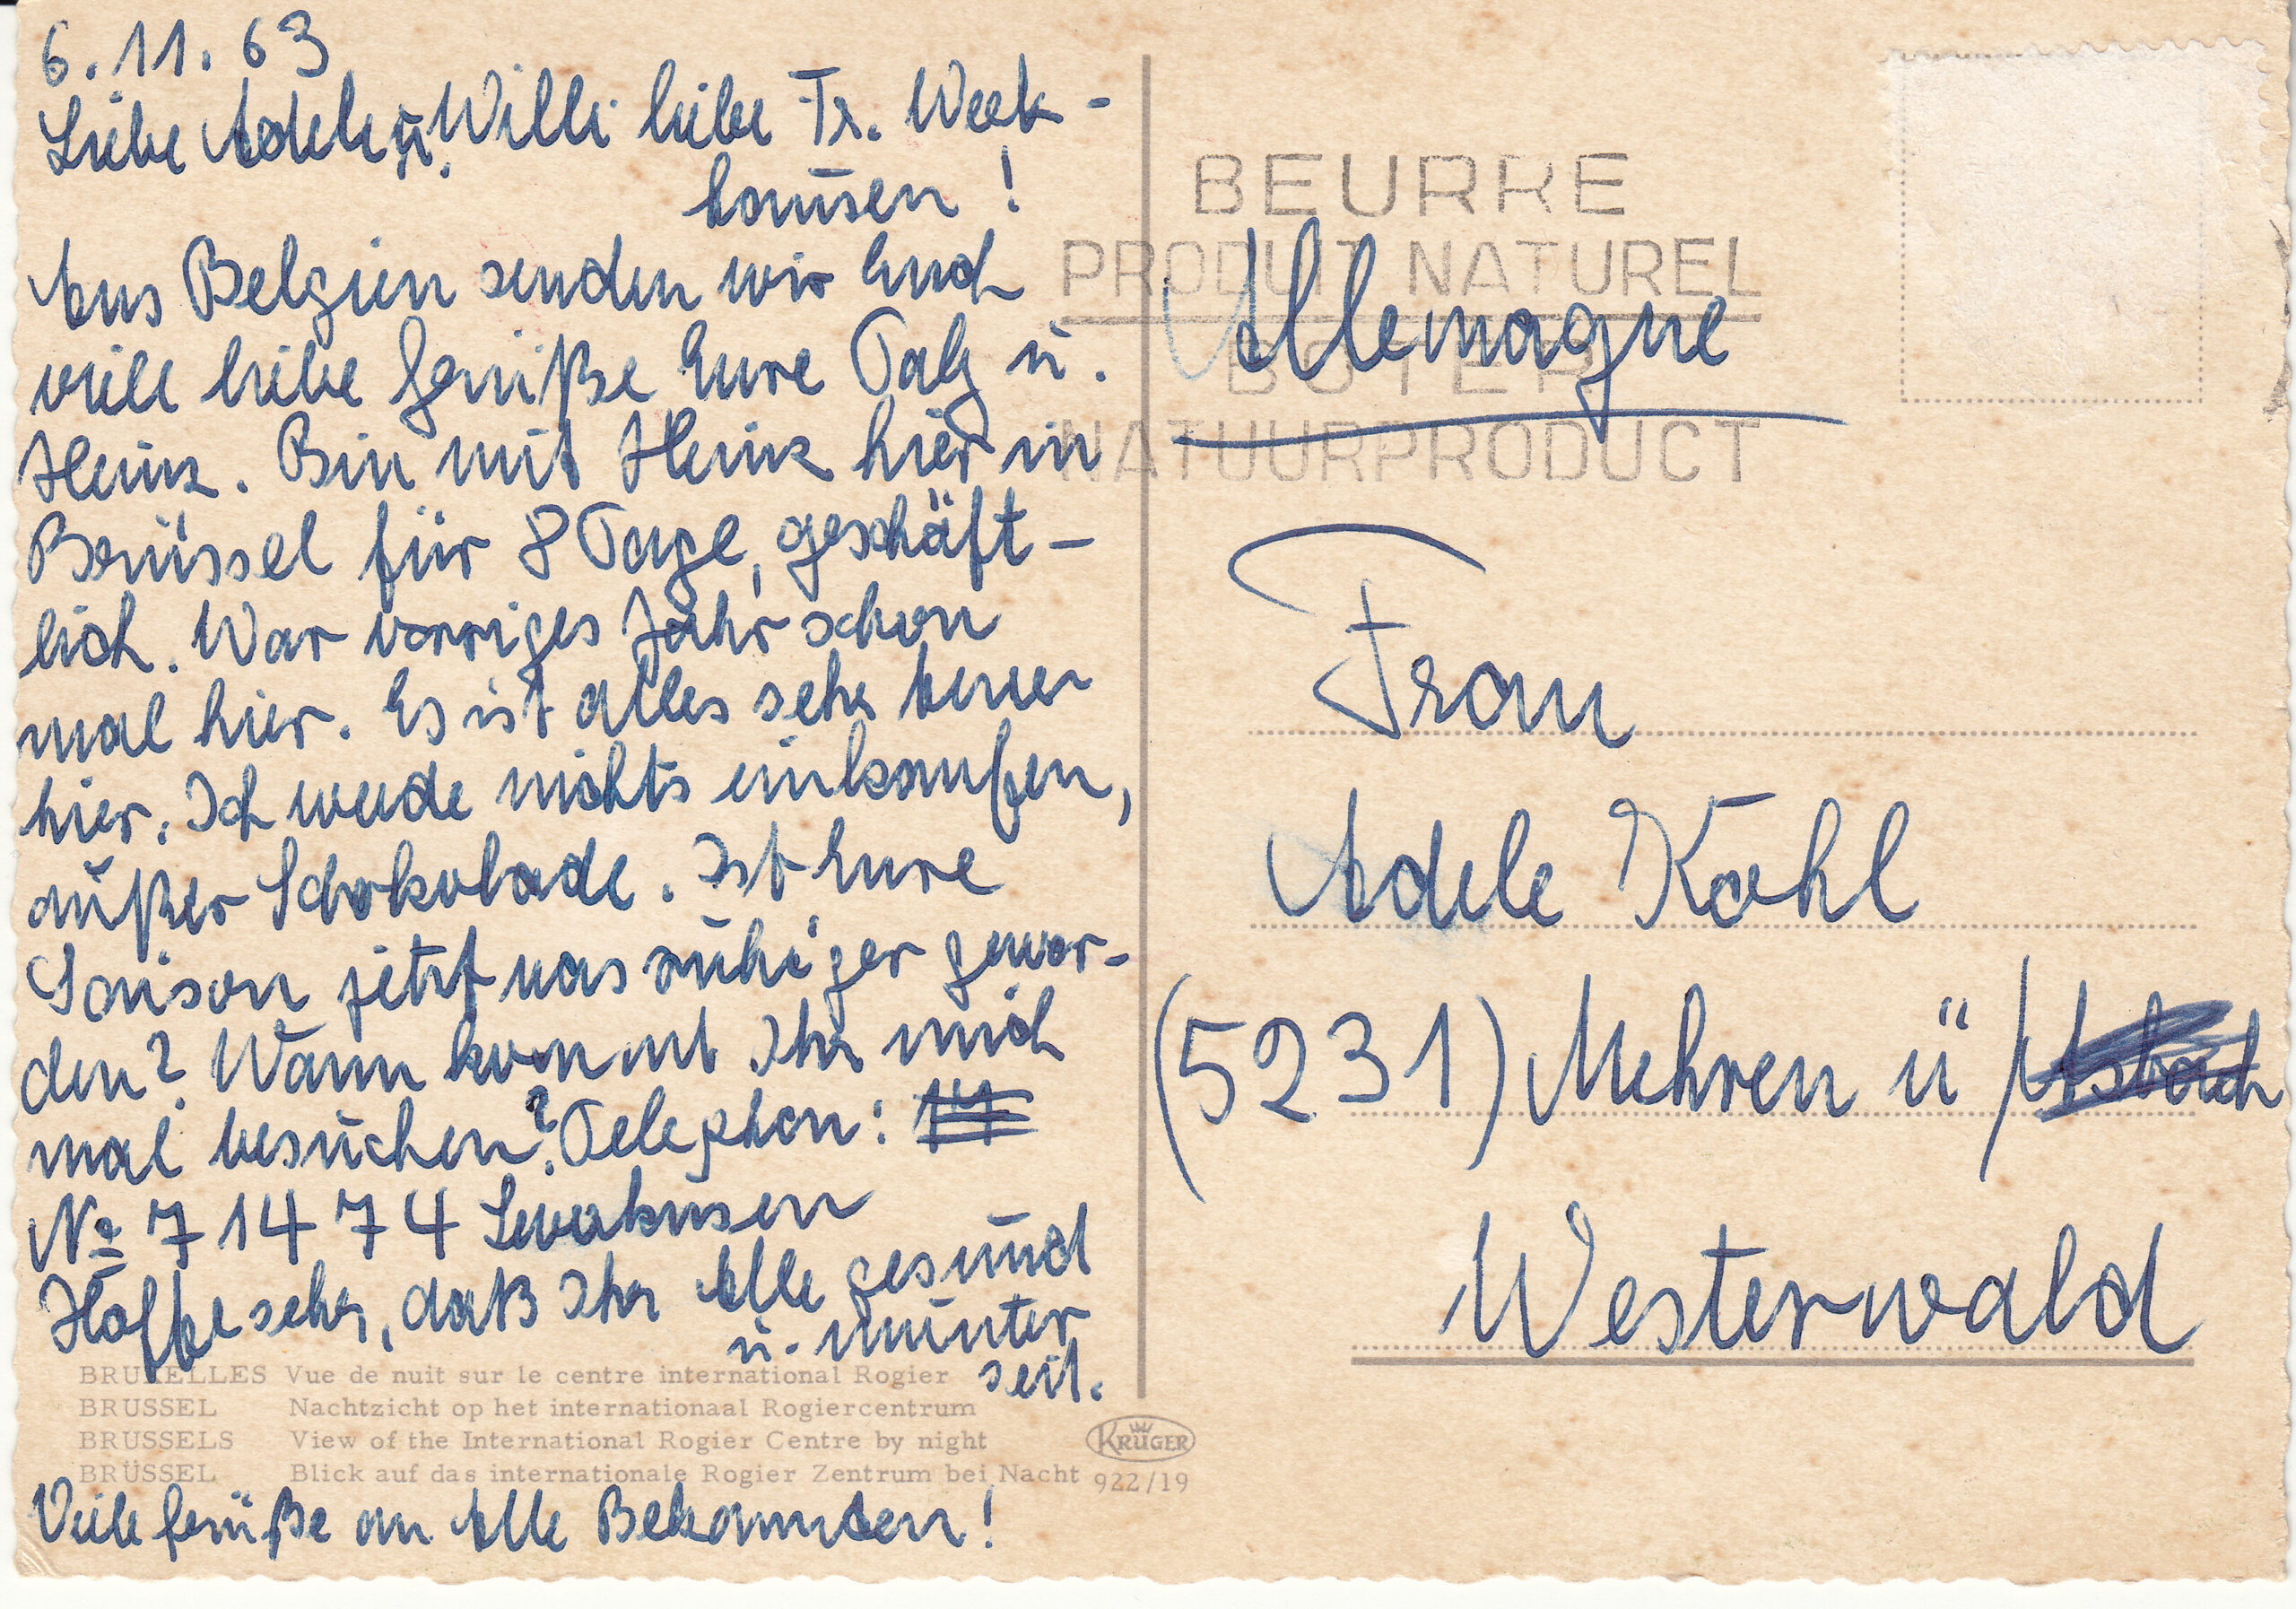 6.11.63
Liebe Adele u. Willi liebe Fr. Week-
hausen!
Aus Belgien senden wir Euch
viele liebe Grüße Eure u.
Heinz. Bin mit Heinz hier in
Brüssel für 8 Tage, geschäft-
lich. War vorriges Jahr schon
mal hier. Es ist alles sehr teuer
hier. Ich werde nichts einkaufen,
außer Schokolade. Ist Eure
Saison jetzt was ruhiger gewor-
den? Wann kommt Ihr mich
mal besuchen? Telephon:
No 7 14 74 Leverkusen
Hoffe sehr, daß Ihr Alle gesund
u. munter
seit.
BRUXELLES Vue de nuit sur le centre international Rogier
BRUSSEL Nachtzicht op het internationaal Rogiercentrum
BRUSSELS View of the International Rogier Centre by night
BRÜSSEL Blick auf das internationale Rogier Zentrum bei Nacht
KRÜGER
922/19
Viele Grüße an Alle Bekannten!
BEURRE
PRODUIT NATUREL
BOTER
NATUURPRODUCT
Allemagne
Frau
Adele Kahl
(5231) Mehren ü/Asbach
Westerwald